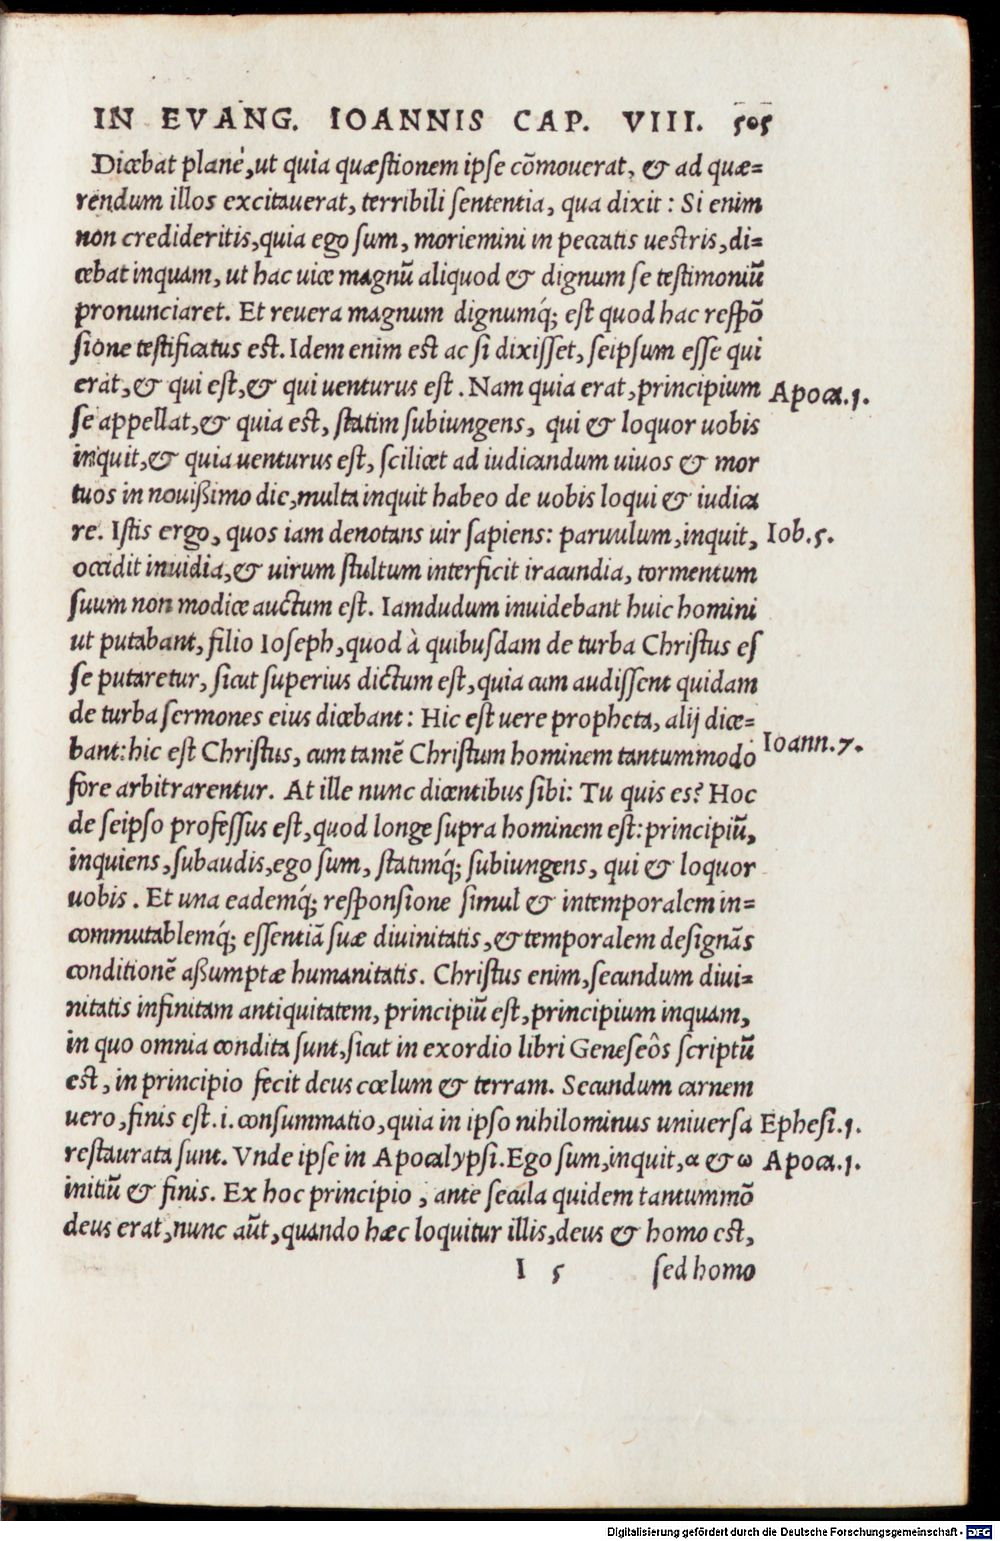 IN EVANG. IOANNIS CAP. VIII. 505
Dicebat planè, ut quia quæstionem ipse cõmouerat, & ad quæ=
rendum illos excitauerat, terribili sententia, qua dixit: Si enim
non credideritis, quia ego sum, moriemini in peccatis uestris, di=
cebat inquam, ut hac uice magnũ aliquod & dignum se testimoniũ
pronunciaret. Et reuera magnum dignumq́; est quod hac respõ
sione testificatus est. Idem enim est ac si dixisset, seipsum esse qui
erat, & qui est, & qui uenturus est. Nam quia erat, principium
Apoca.1.
se appellat, & quia est, statim subiungens, qui & loquor uobis
inquit, & quia uenturus est, scilicet ad iudicandum uiuos & mor
tuos in nouißimo die, multa inquit habeo de uobis loqui & iudica
re. Istis ergo, quos iam denotans uir sapiens: paruulum, inquit,
Iob.5.
occidit inuidia, & uirum stultum interficit iracundia, tormentum
suum non modice auctum est. Iamdudum inuidebant huic homini
ut putabant, filio Ioseph, quod à quibusdam de turba Christus es
se putaretur, sicut superius dictum est, quia cum audissent quidam
de turba sermones eius dicebant: Hic est uere propheta, alij dice=
bant: hic est Christus, cum tamẽ Christum hominem tantummodo
Ioann.7.
fore arbitrarentur. At ille nunc dicentibus sibi: Tu quis es? Hoc
de seipso professus est, quod longe supra hominem est: principiũ,
inquiens, subaudis, ego sum, statimq́; subiungens, qui & loquor
uobis. Et una eademq́; responsione simul & intemporalem in=
commutablemq́; essentiã suæ diuinitatis, & temporalem designãs
conditionẽ aßumptæ humanitatis. Christus enim, secundum diui=
nitatis infinitam antiquitatem, principiũ est, principium inquam,
in quo omnia condita sunt, sicut in exordio libri Geneseôs scriptũ
est, in principio fecit deus cœlum & terram. Secundum carnem
uero, finis est .i. consummatio, quia in ipso nihilominus uniuersa
Ephesi.1.
restaurata sunt. Vnde ipse in Apocalypsi. Ego sum, inquit, α & ω
Apoca.1.
initiũ & finis. Ex hoc principio, ante secula quidem tantummõ
deus erat, nunc aũt, quando hæc loquitur illis, deus & homo est,
I 5 sed homo
Digitalisierung gefördert durch die Deutsche Forschungsgemeinschaft - DFG